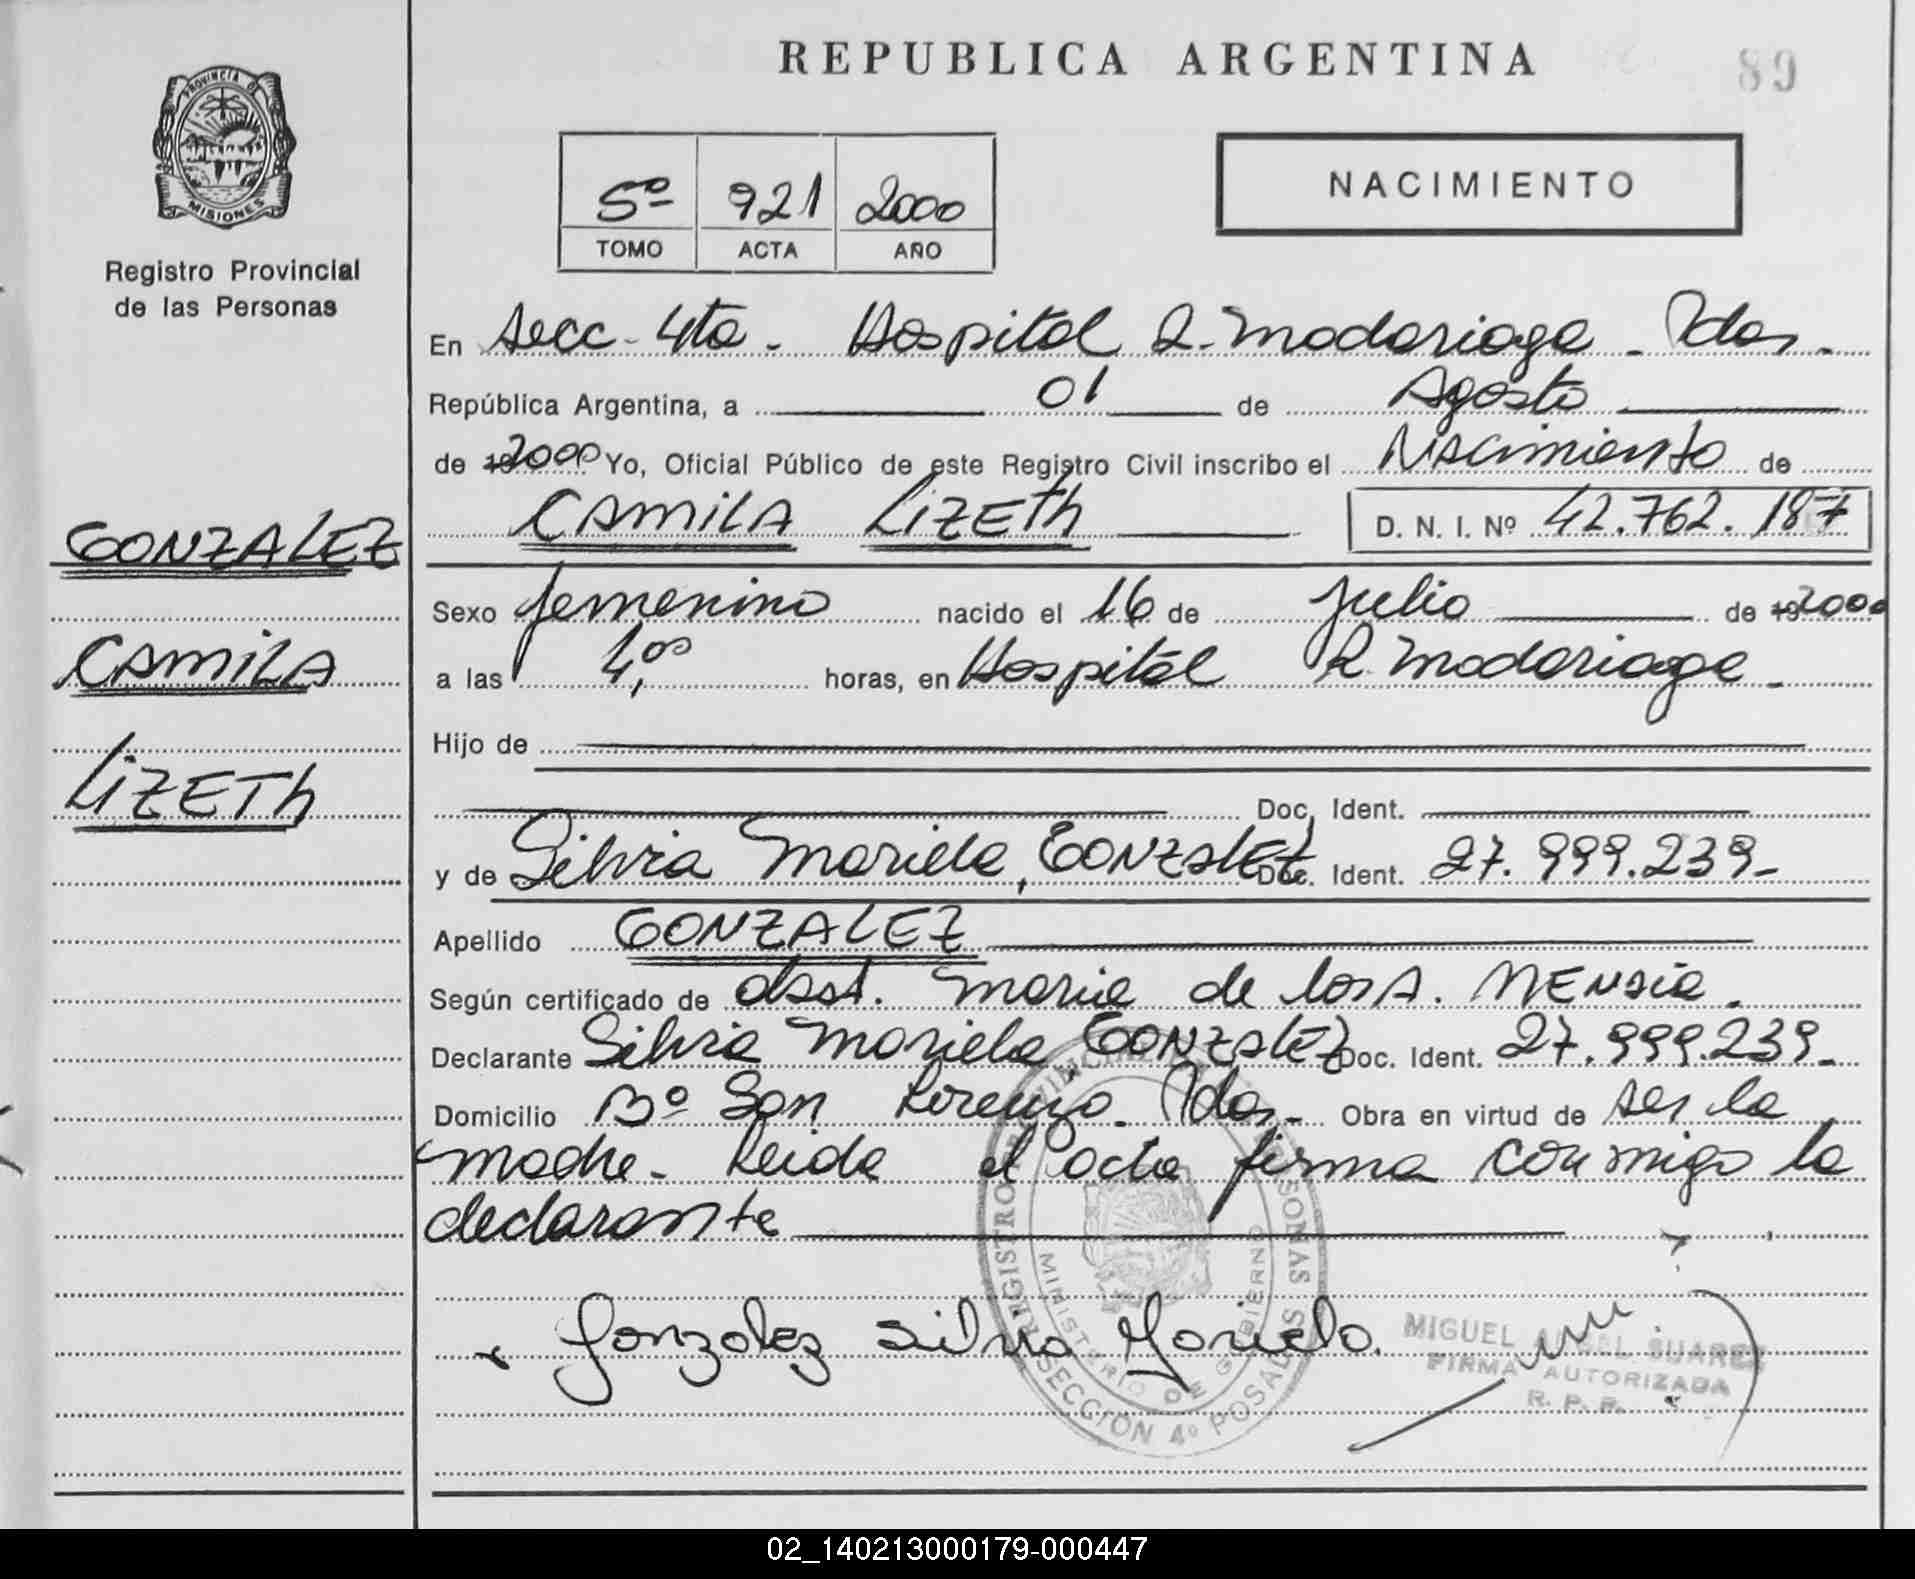 REPUBLICA ARGENTINA
89
PROVINCIA DE
MISIONES
Registro Provincial
de las Personas
5º 921 2000
TOMO ACTA AÑO
NACIMIENTO
En Secc. 4ta. Hospital R. Madariaga - Pdas.
República Argentina, a 01 de Agosto
de 2000 Yo, Oficial Público de este Registro Civil inscribo el Nacimiento de
CAMILA LIZETh D. N. I. Nº 42.762.187
GONZALEZ
CAMILA
LIZETh
Sexo femenino nacido el 16 de Julio de 2000
a las 4,00 horas, en Hospital R. Madariaga -
Hijo de
Doc. Ident.
y de Silvia Mariela, GONZALEZ Doc. Ident. 27.999.239-
Apellido GONZALEZ
Según certificado de obst. Maria de los A.
Declarante Silvia Mariela, GONZALEZ Doc. Ident. 27.999.239-
Domicilio Bº San Lorenzo - Pdas - Obra en virtud de ser la
madre - Leida el acta firma conmigo la
declarante
Gonzalez Silvia Mariela.
REGISTRO PROVINCIAL DE LAS PERSONAS
MINISTERIO DE GOBIERNO
SECCION 4º POSADAS
MIGUEL ANGEL SUAREZ
FIRMA AUTORIZADA
R. P. P.
02_140213000179-000447